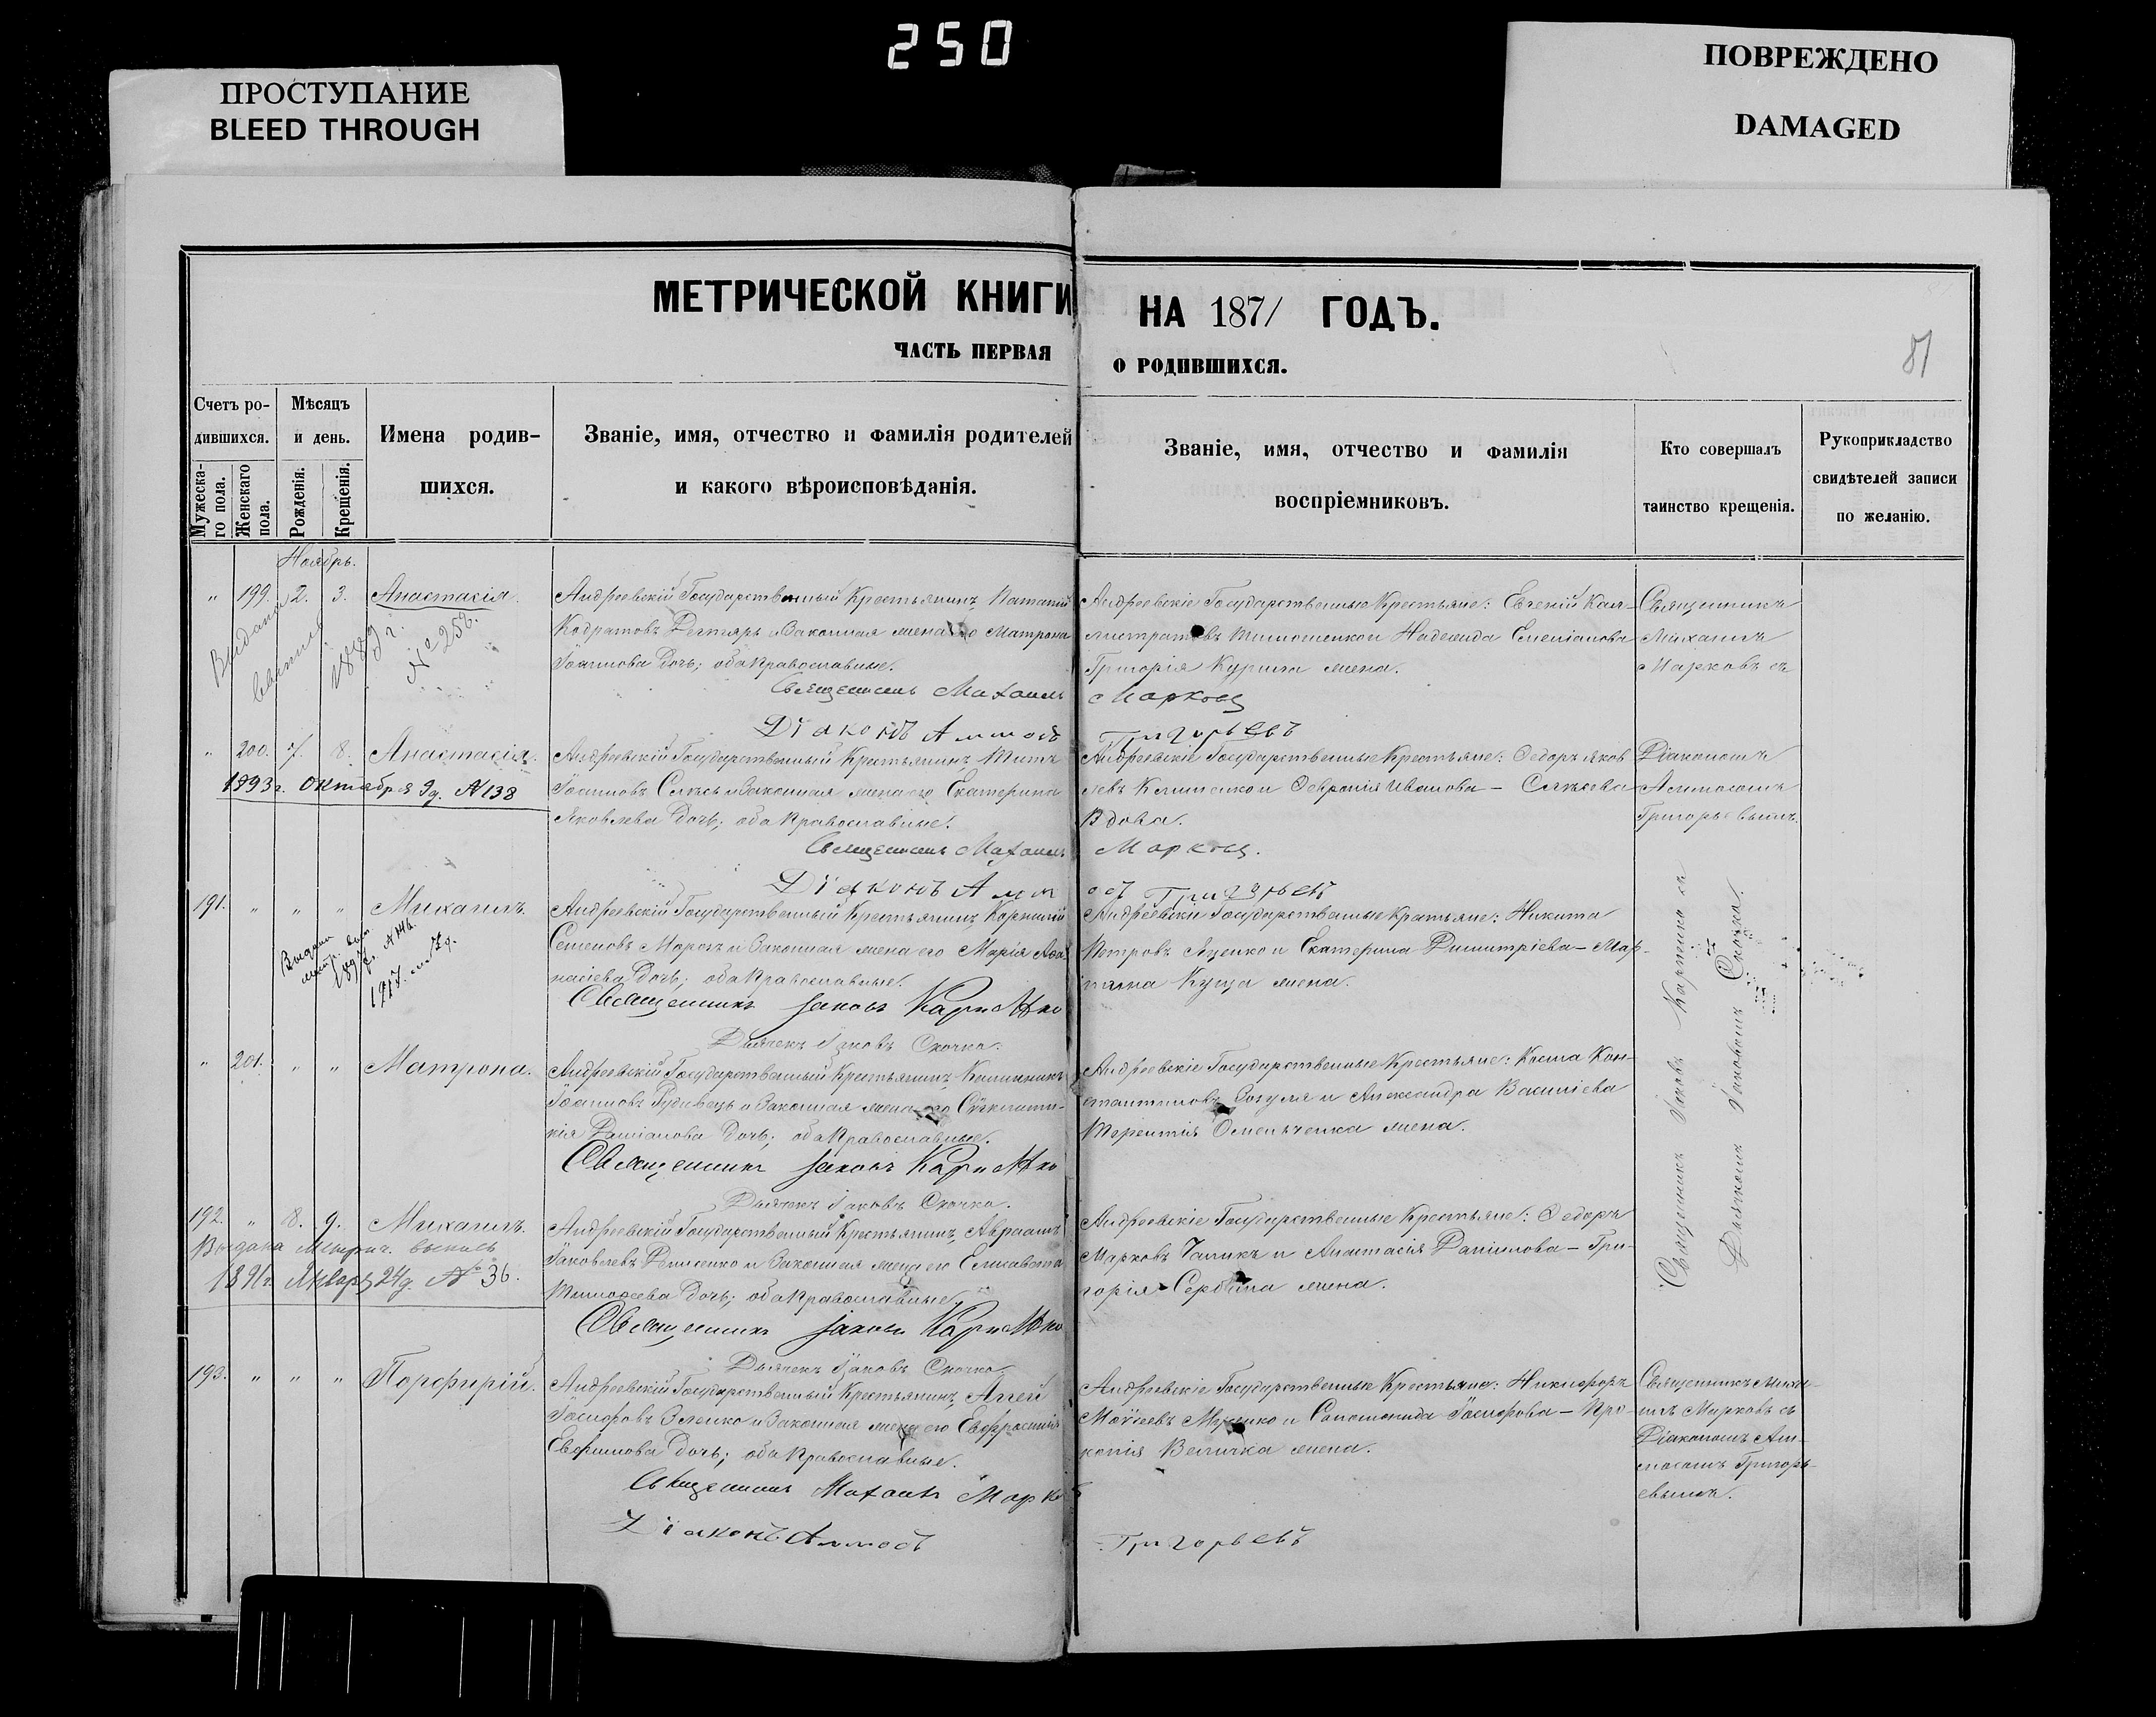 250
ПРОСТУПАНИЕ
BLEED THROUGH
ПОВРЕЖДЕНО
DAMAGED
МЕТРИЧЕСКОЙ КНИГИ НА 1871 ГОДЪ.
ЧАСТЬ ПЕРВАЯ О РОДИВШИХСЯ.
81
Счетъ ро-
дившихся.
Мужеска-
го пола.
Женскаго
пола.
Мѣсяцъ
и день.
Рожденія.
Крещенія.
Имена родив-
шихся.
Званіе, имя, отчество и фамилія родителей
и какого вѣроисповѣданія.
Званіе, имя, отчество и фамилія
воспріемниковъ.
Кто совершалъ
таинство крещенія.
Рукоприкладство
свидѣтелей записи
по желанію.
Ноябрь.
„ 199. 2. 3. Анастасія.
Выдана
1889 г.
№ 258.
Андреевскій Государственный Крестьянинъ Потапій
Кодратовъ Дегтярь и Законная жена его Матрона
Іоаннова Дочь; оба Православные.
Священникъ Михаилъ Марковъ
Діаконъ Аммосъ Григорьевъ
Андреевскіе Государственные Крестьяне: Евгеній Кал-
листратовъ Тимошенко и Надежда Емеліанова
Григорія Курила жена.
Священникъ
Михаилъ
Марковъ съ
„ 200. 7. 8. Анастасія.
1893 г. Октября 9 д. № 138
Андреевскій Государственный Крестьянинъ Титъ
Іоанновъ и Законная жена его Екатерина
Яковлева Дочь; оба Православные.
Священникъ Михаилъ Марковъ.
Діаконъ Аммосъ Григорьевъ
Андреевскіе Государственные Крестьяне: Ѳедоръ Яков
левъ Клименко и Февронія Иванова –
Вдова.
Діакономъ
Аммосомъ
Григорьевымъ.
191. „ „ „ Михаилъ.
1917
Андреевскій Государственный Крестьянинъ Корнилій
Семеновъ Морозъ и Законная жена его Марія Аѳа-
насіева Дочь; оба Православные.
Священникъ Іаковъ Карпенко
Дьячекъ Іаковъ Скочко.
Андреевскіе Государственные Крестьяне: Никита
Петровъ Яценко и Екатерина Димитріева – Мар-
тина Куща жена.
„ 201. „ „ Матрона.
Андреевскій Государственный Крестьянинъ Каллиникъ
Іоанновъ Гудивецъ и Законная жена его Сѵнклити-
кія Даміанова Дочь; оба Православные.
Священникъ Іаковъ Карпенко
Дьячекъ Іаковъ Скочко.
Андреевскіе Государственные Крестьяне: Косма Кон-
стантиновъ и Александра Василіева
Терентія Омельченка жена.
192. „ 8. 9. Михаилъ.
Выдана Метрич. выпись
1891 г. Январь 24 д. № 36.
Андреевскій Государственный Крестьянинъ Авраамъ
Іаковлевъ Денисенко и Законная жена его Елисавета
Тимоѳеева Дочь; оба Православные.
Священникъ Іаковъ Карпенко
Дьячекъ Іаковъ Скочко.
Андреевскіе Государственные Крестьяне: Ѳедоръ
Марковъ и Анастасія Даніилова – Гри-
горія Сербина жена.
Священникъ Іаковъ Карпенко съ
Дьячкомъ Іаковомъ Скочко.
193. „ „ „ Порфирій.
Андреевскій Государственный Крестьянинъ Аггей
Іосифовъ Зленко и Законная жена его Евфросинія
Евфимова Дочь; оба Православные.
Священникъ Михаилъ Марковъ
Діаконъ Аммосъ Григорьевъ
Андреевскіе Государственные Крестьяне: Никифоръ
Моѵсеевъ и Соломонида Іосифова – Про-
копія Величка жена.
Священникъ Миха-
илъ Марковъ съ
Діакономъ Ам-
мосомъ Григорь-
евымъ.